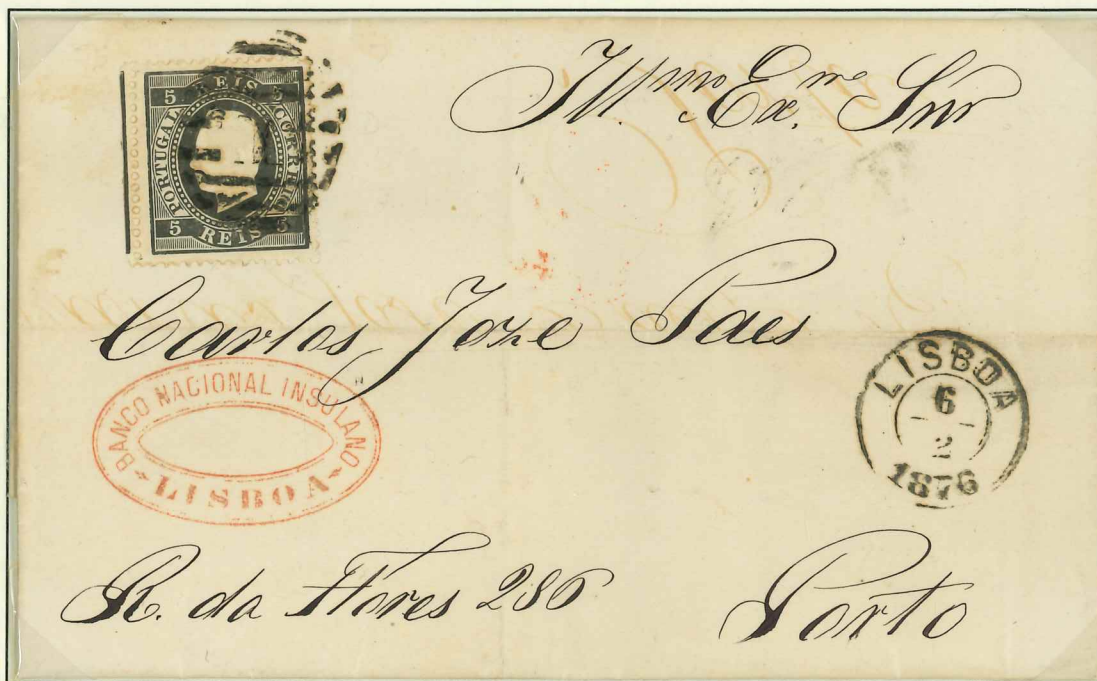 5 REIS 5
PORTUGAL
CORREIO
5 REIS 5
Illmo Exmo Snr
Carlos Joze Paes
BANCO NACIONAL INSULANO
LISBOA
LISBOA
6
2
1876
R. da Flores 286
Porto